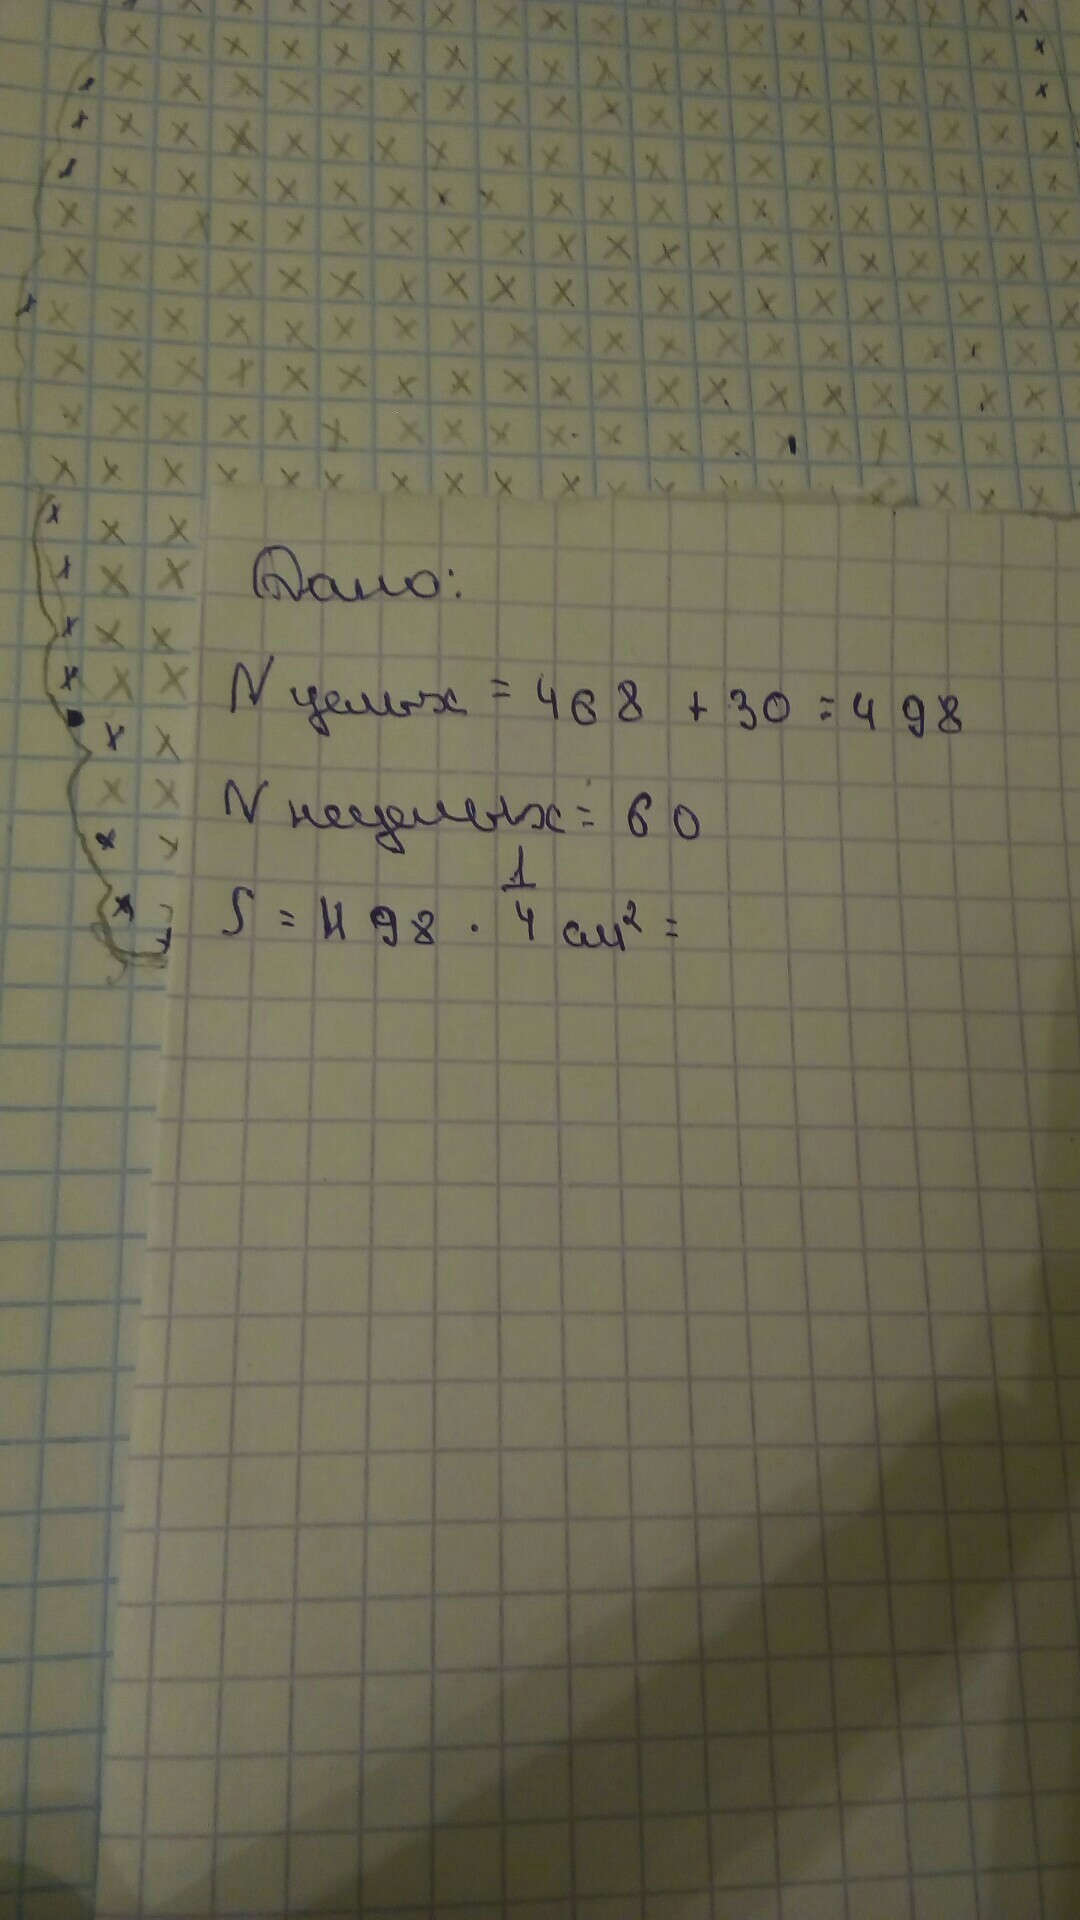 Дано:
N целых = 468 + 30 = 498
N нецелых = 60
S = 498 · 1/4 см² =